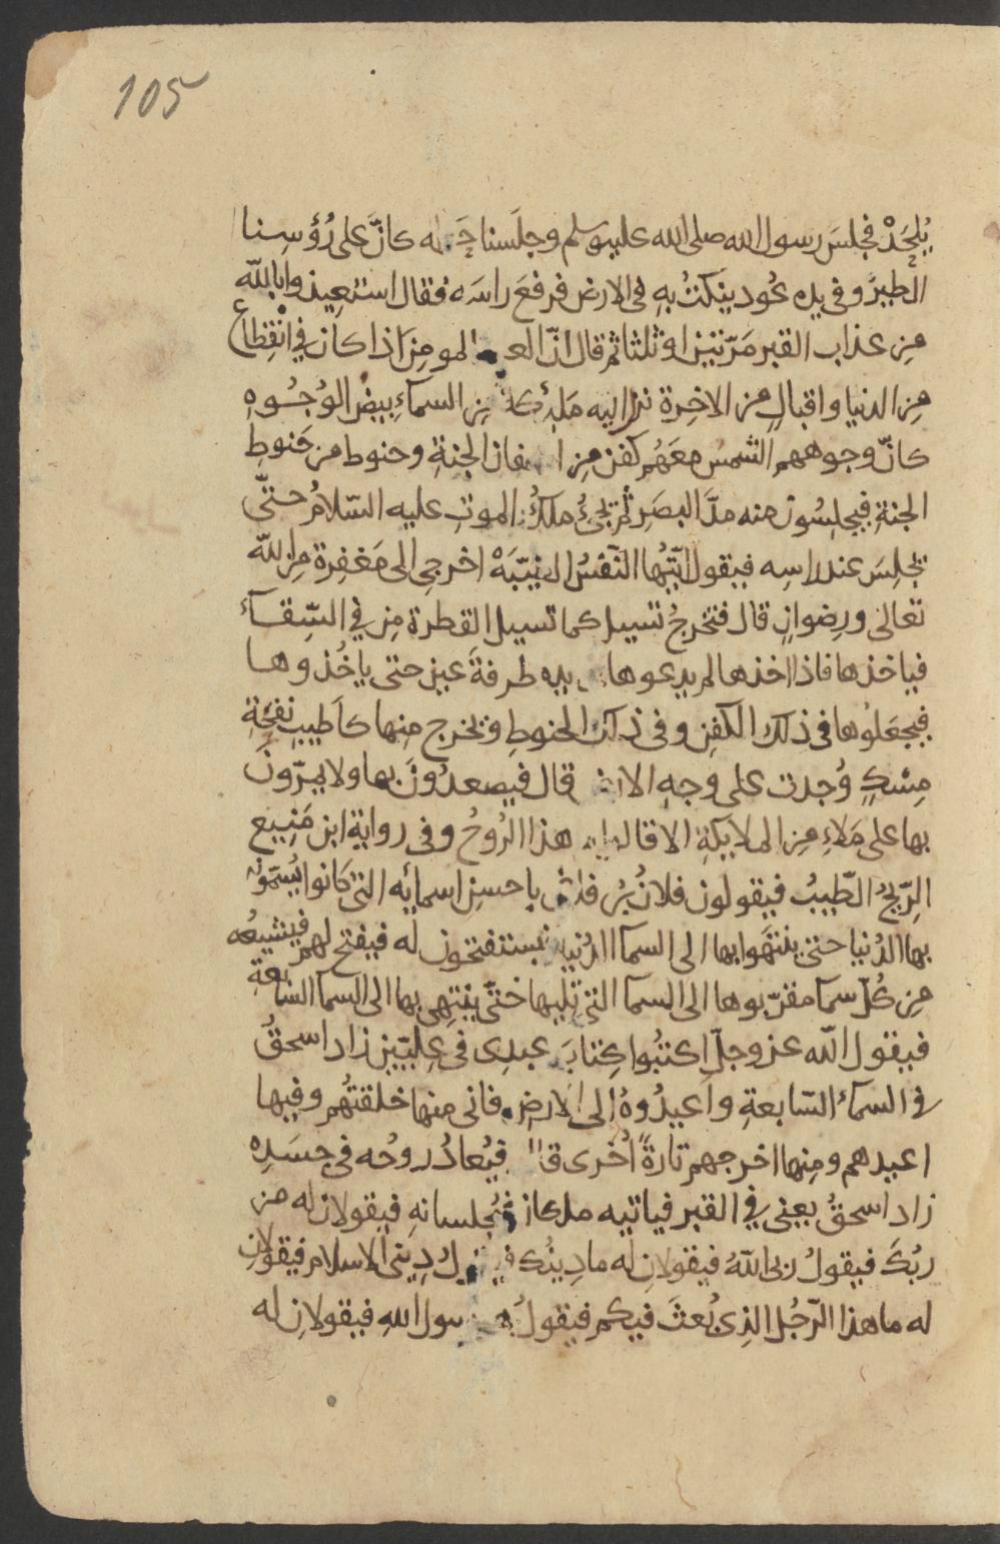 105
يُلحَدْ فجلسَ رسول الله صلى الله عليه وسلم وجلَسنا حَوله كانَّ على رُؤسِنا
الطيرُ وفى يده عُود ينكتُ بهِ فى الارض فرفعَ راسَه فقال استعيذوا بالله
مِن عذاب القبر مَرّتيْن او ثلثا ثم قال انّ العبد المومِنَ اذا كان فى انقِطاع
مِن الدنيا واقبالٍ من الاخِرة نزل اليه مَلئكة مِن السمآءِ بيضُ الوُجُوهِ
كانّ وجوههم الشمسُ معَهُم كفن مِن اكفان الجنةِ وحنوط من حَنوطِ
الجنةِ فيجلِسُون منه مدَّ البصَرِ ثم يجئُ ملكُ الموتِ عليه السّلامُ حتّى
يجلِسَ عند راسِه فيقول ايّتُها النّفسُ الطيّبَهْ اخرجى الى مَغفِرة مِن الله
تعالى ورِضوانٍ قال فتخرجُ تسيل كما تسيل القطرة مِن فى السِّقآء
فياخذها فاذا اخذها لم يدعوها فى يده طرفةَ عينٍ حتى ياخُذوها
فيجعَلُوها فى ذلك الكفنِ وفى ذلك الحنوطِ وتخرج مِنها كاَطيبِ نفحَةِ
مِسْكٍ وُجدت على وجهِ الارض قال فيصعدُونَ بها ولا يمرّونَ
بها على مَلاءٍ مِن الملايكةِ الا قالوا ما هذا الرُوحُ وفى رواية ابن مَنِيع
الرّيحُ الطّيبُ فيقولون فلانُ بْنُ فلان باحسنِ اسمائه التى كانوا يُسمّونه
بها الدُنيا حتى ينتهَوا بها الى السما الدُنيا فيستفتحون له فيفتح لهم فيشيعُه
مِن كُلّ سما مقرّبوها الى السما التى تليها حتّى ينتهى بها الى السما السّابعةِ
فيقول الله عز وجلّ اكتبُوا كِتابَ عبدى فى عِليّين زاد اسحقُ
فى السمآءُ السّابعةِ واَعيدُوهُ الى الارضِ فانى منها خلقتُهُم وفيها
اعيدهم ومِنها اخرجهم تارةً اُخرى قال فيُعادُ روحُه فى جسَدِه
زاد اسحقُ يعنى فى القبر فياتيه ملكان فيُجلسانهِ فيقولان له من
ربُكَ فيقولُ ربى اللهُ فيقولانِ له ما دِينُك فيقولُ دِينى الاسلام فيقولانِ
له ما هذا الرّجُل الذِى بُعثَ فيكم فيقولُ هو رسول اللهِ فيقولانِ له